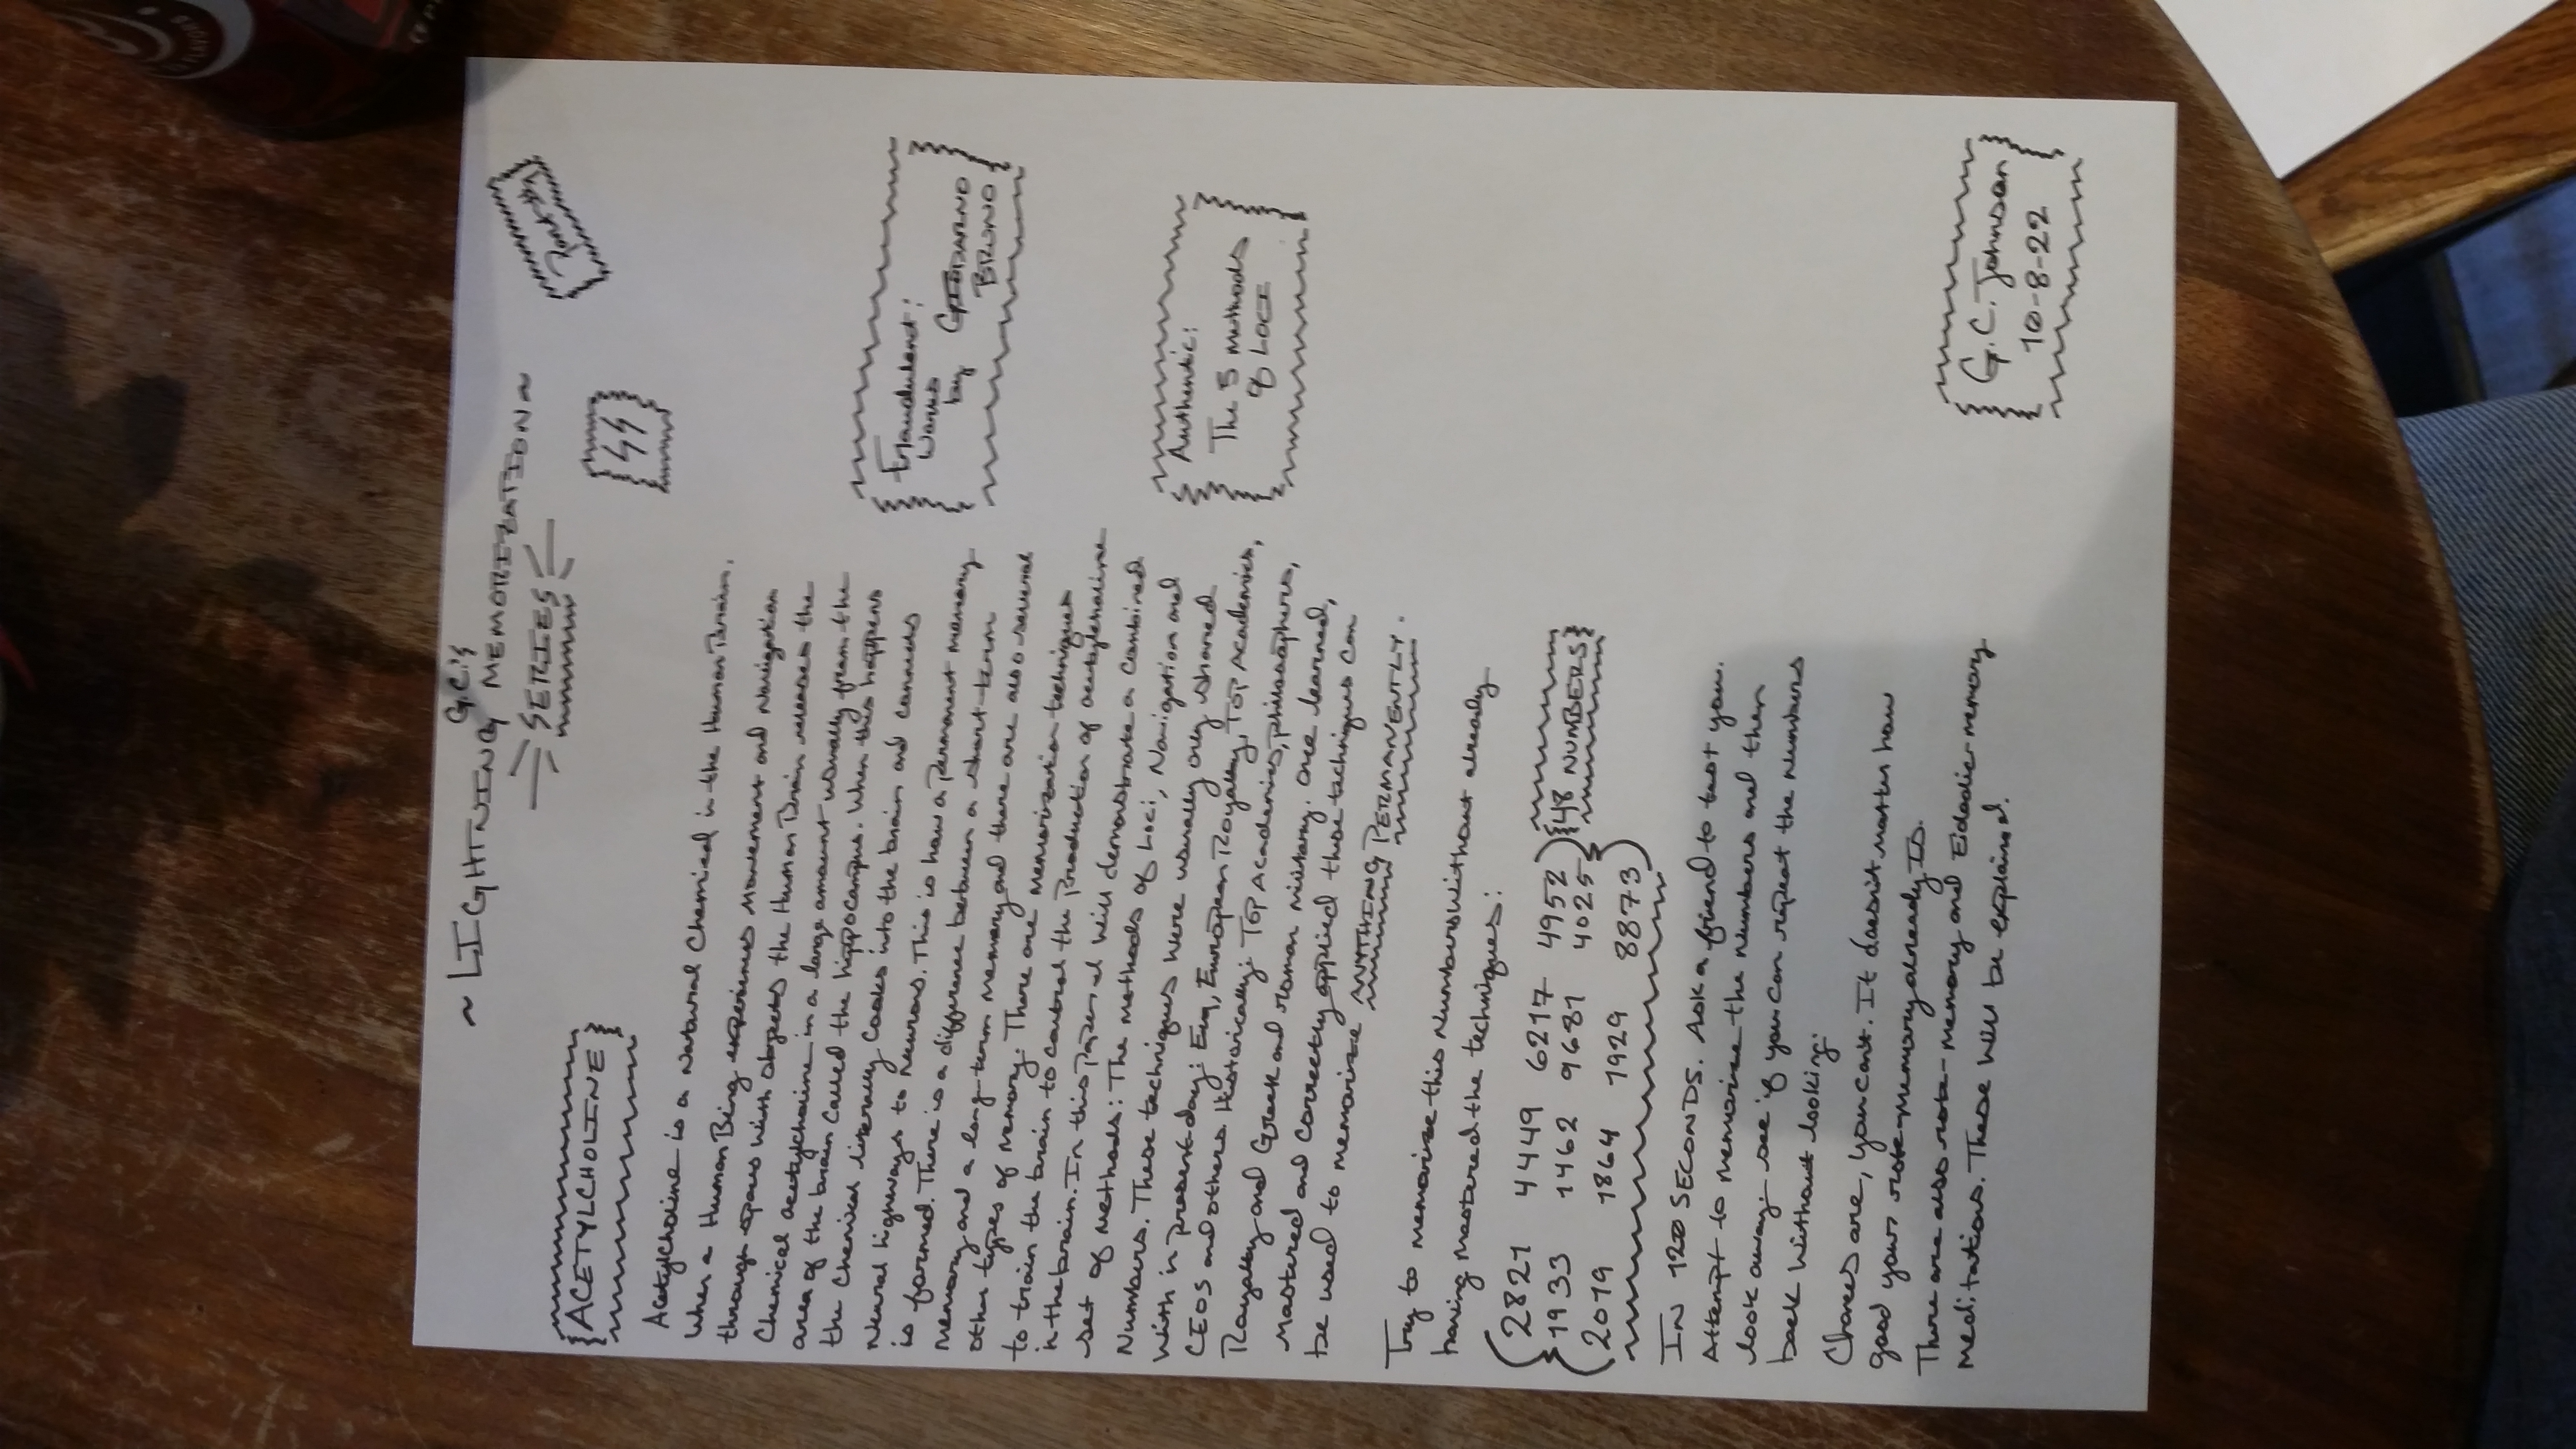 G.C.'s
~LIGHTNING MEMORIZATION~
SERIES
Part #1
ACETYLCHOLINE
Acetylcholine is a Natural Chemical in the Human Brain.
When a Human Being experiences Movement and Navigation
through spaces with objects the Human Brain releases the
Chemical acetylcholine in a large amount usually from the
area of the brain called the hippocampus. When this happens
the Chemical literally Cooks into the brain and connects
Neural highways to neurons. This is how a Permanent memory
is formed. There is a difference between a short-term
memory and a long-term memory and there are also several
other types of Memory. There are memorization techniques
to train the brain to control the Production of acetylcholine
in the brain. In this Paper I will demonstrate a Combined
set of Methods: The Methods of Loci, Navigation and
Numbers. These techniques were usually only shared
with in present-day: European Royalty, TOP Academics,
CEOS and others. Historically: TOP Academics, philosophers,
Royalty and Greek and roman military. Once learned,
Mastered and Correctly applied these techniques can
be used to memorize ANYTHING PERMANENTLY.
Try to memorize this Numbers without already
having Mastered the techniques:
2821 4449 6217 4952
1933 1462 9681 4025
2019 1864 1929 8873
48 NUMBERS
IN 120 SECONDS. Ask a friend to test you.
Attempt to memorize the Numbers and then
look away. see if you can repeat the Numbers
back without looking.
Chances are, you can't. It doesn't matter how
good your rote-memory already Is.
There are also rote-memory and Eidedic-memory
meditations. These will be explained.
Fraudulent:
Works
by GIODARNO
BRUNO
Authentic:
The 5 methods
of LOCI
G.C. Johnson
10-8-22
FLAVORS